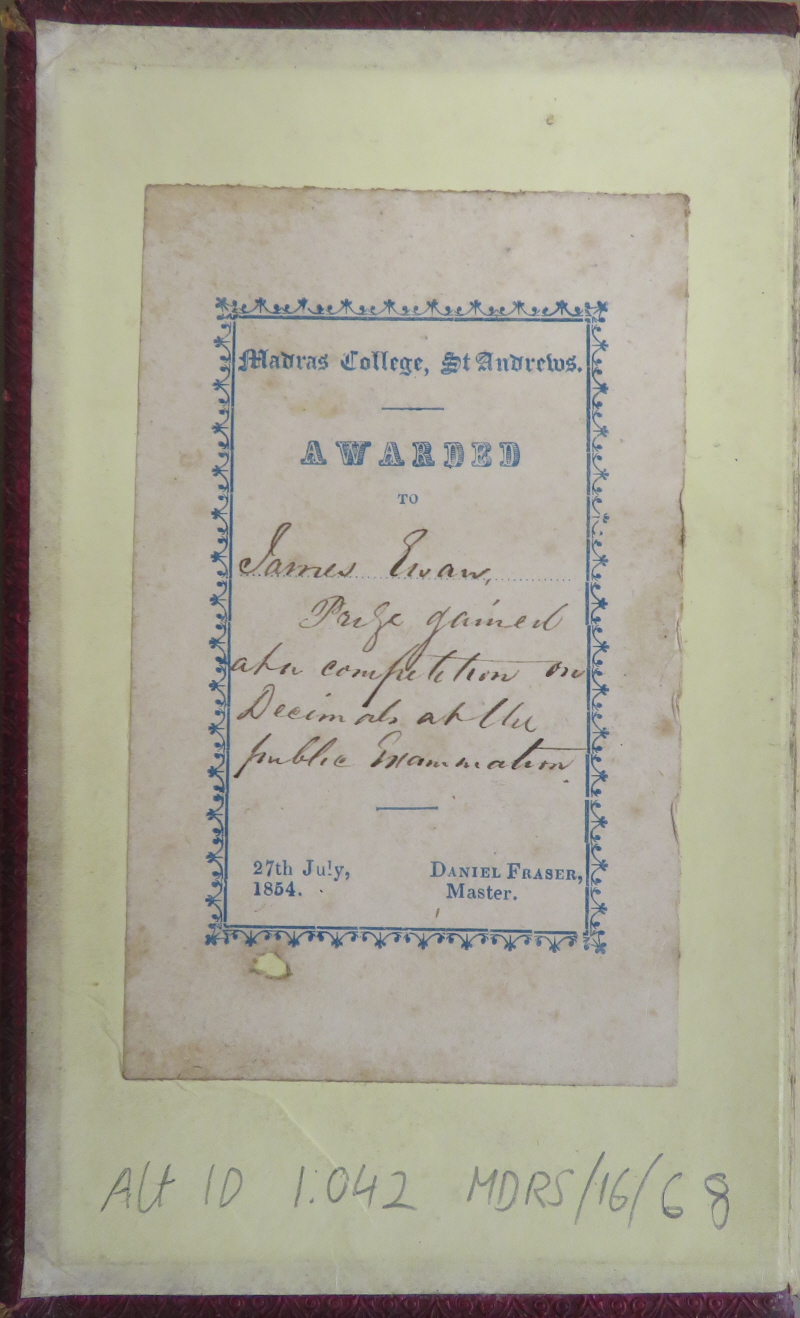 Madras College, St Andrews.
AWARDED
TO
James Ewan,
Prize gained
at a competition on
Decimals at the
public Examination.
27th July, DANIEL FRASER,
1854. Master.
Alt ID 1.042 MDRS/16/68